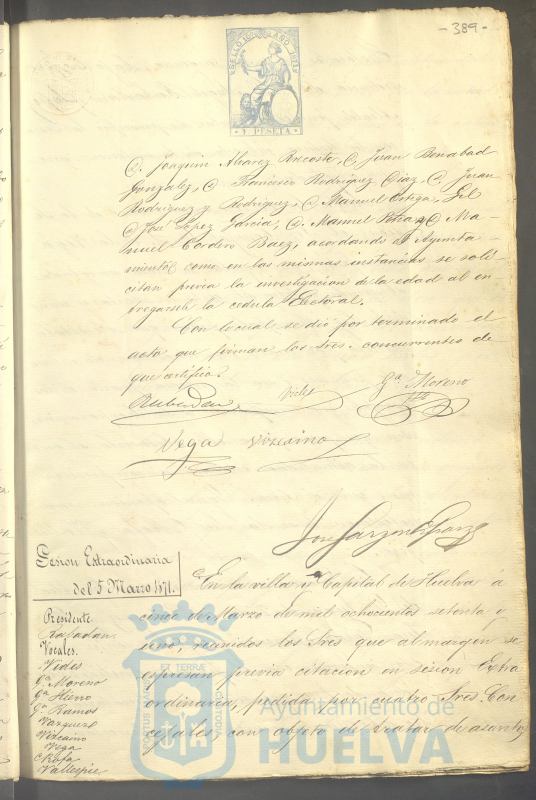 -389-
SELLO 10º AÑO 1871
Y PESETA
D. Joaquin Alvarez Arcoste, D. Juan Benabad
Gonzalez, D. Francisco Rodriguez Diaz, D. Juan
Rodriguez y Rodriguez, D. Manuel Ortega, Gil
D. José Lopez Garcia, D. Manuel D. Ma-
nuel Cordero Baez, acordando el Ayunta-
miento como en las mismas instancias se soli-
citan previa la investigacion de la edad al en-
tregarseh la cedula Electoral.
Con lo cual se dió por terminado el
acto que firman los Sres. concurrentes de
que certifico.
Videz Gª Moreno
Vega Vizcaino
José Garzon
Sesion Extraordinaria
del 5 Marzo 1871.
En la villa y Capital de Huelva á
cinco de Marzo de mil ochocientos setenta y
uno, reunidos los Sres que al margen se
espresan previa citacion en sesion Extra
ordinaria, pedida por cuatro Sres. Con
cejales con objeto de tratar de asuntos
Presidente
Rabadan
Vocales.
Vides
Gª Moreno
Gª Hierro
Gª Ramos
Vazquez
Vizcaino
Vega
Rofa
Vallespin
PORTUS MARIS ET TERRÆ CUSTODIA
Ayuntamiento de
HUELVA